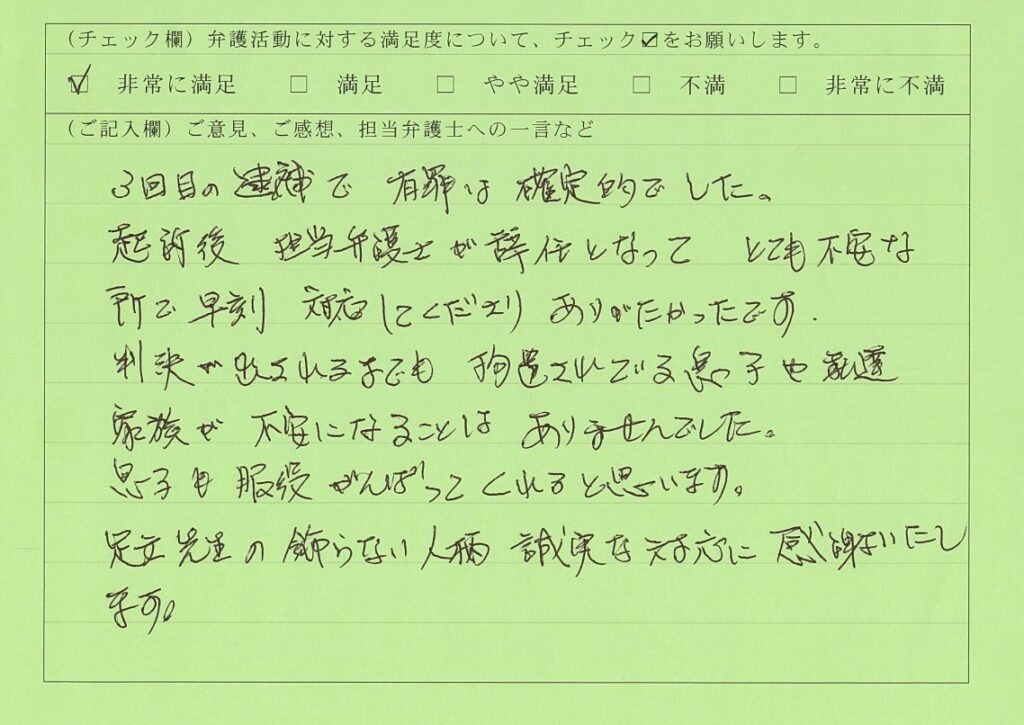 （チェック欄）弁護活動に対する満足度について、チェック☑をお願いします。
☑ 非常に満足 □ 満足 □ やや満足 □ 不満 □ 非常に不満
（ご記入欄）ご意見、ご感想、担当弁護士への一言など
3回目の逮捕で 有罪は 確定的でした。
起訴後 担当弁護士が辞任となって とても不安な
所で早刻 対応してくださり ありがたかったです.
判決が出されるまでも 拘置されている息っ子や私達
家族が 不安になることは ありませんでした。
息子も服役がんばってくれると思います。
足立先生の飾らない人柄 誠実な対応に 感謝いたし
ます。